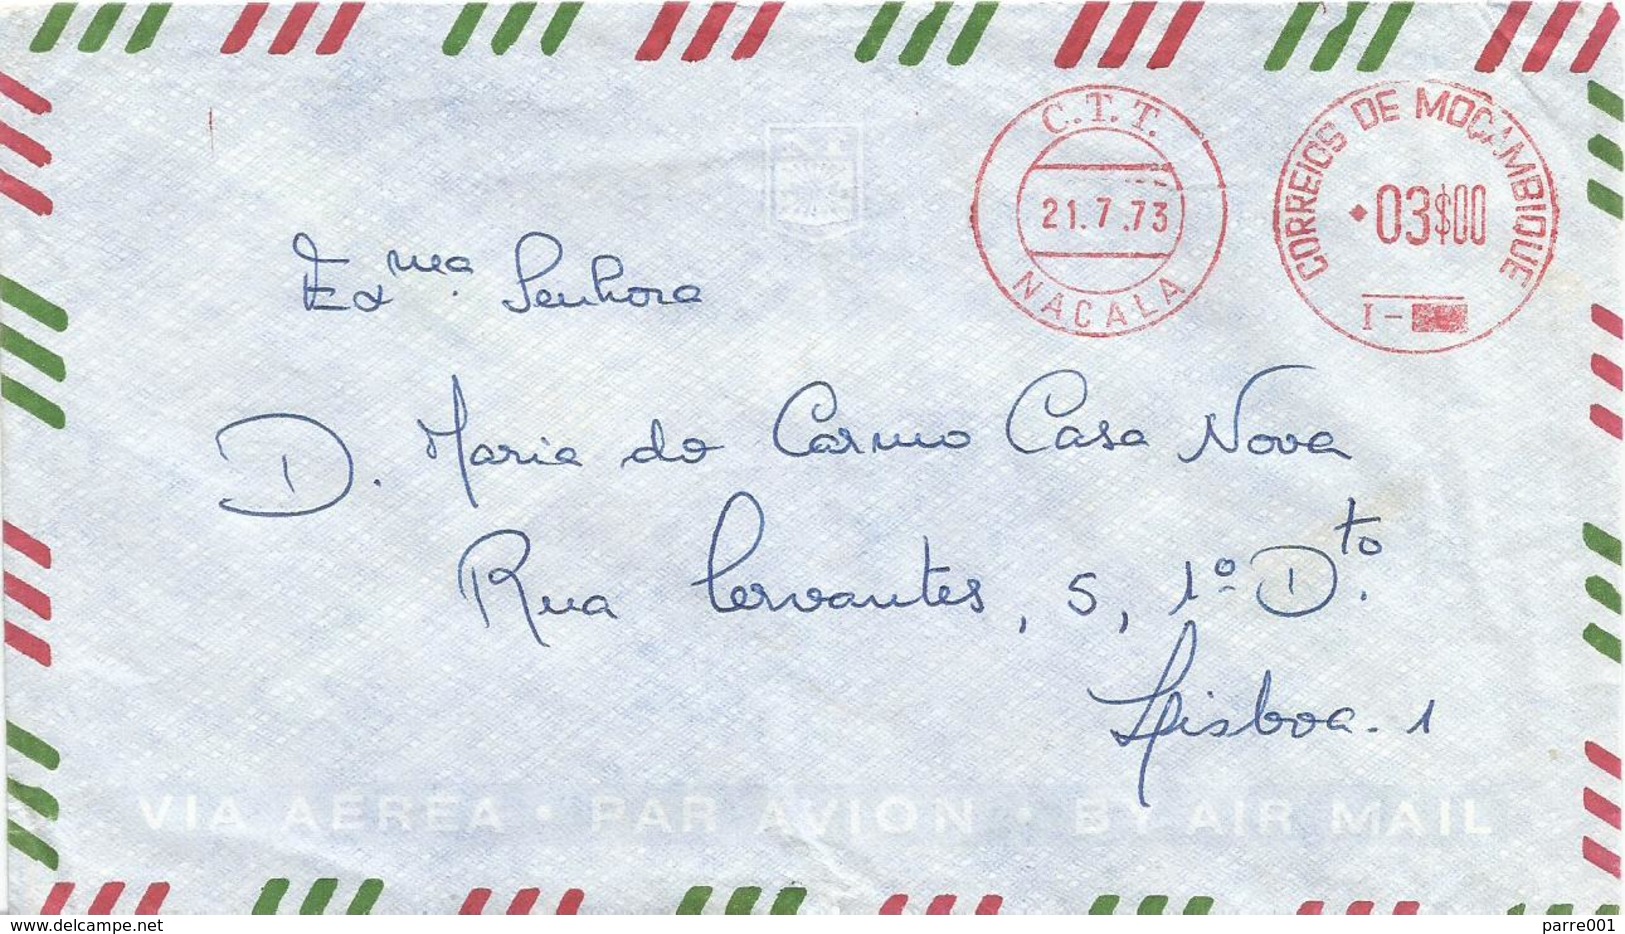 C.T.T.
21.7.73
NACALA
CORREIOS DE MOÇAMBIQUE
03$00
I-
Exma. Senhora
D. Maria do Carmo Casa Nova
Rua Cervantes, 5, 1º Dto.
Lisboa-1
VIA AÉREA • PAR AVION • BY AIR MAIL
delcampe.net
parre001